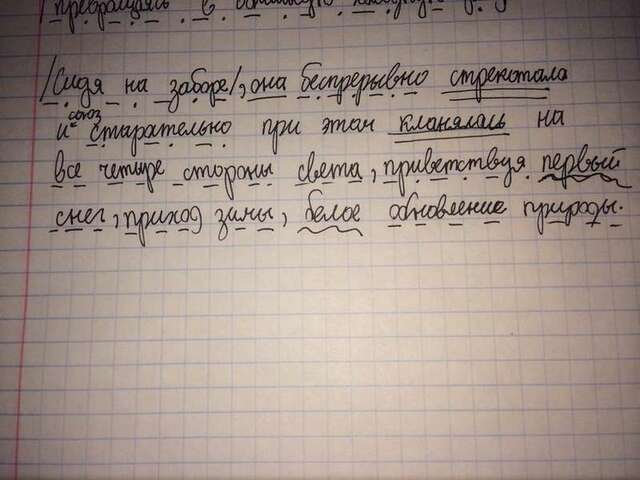 превращаясь в
/Сидя на заборе/, она беспрерывно стрекотала
союз
и старательно при этом кланялась на
все четыре стороны света, приветствуя первый
снег, приход зимы, белое обновление природы.